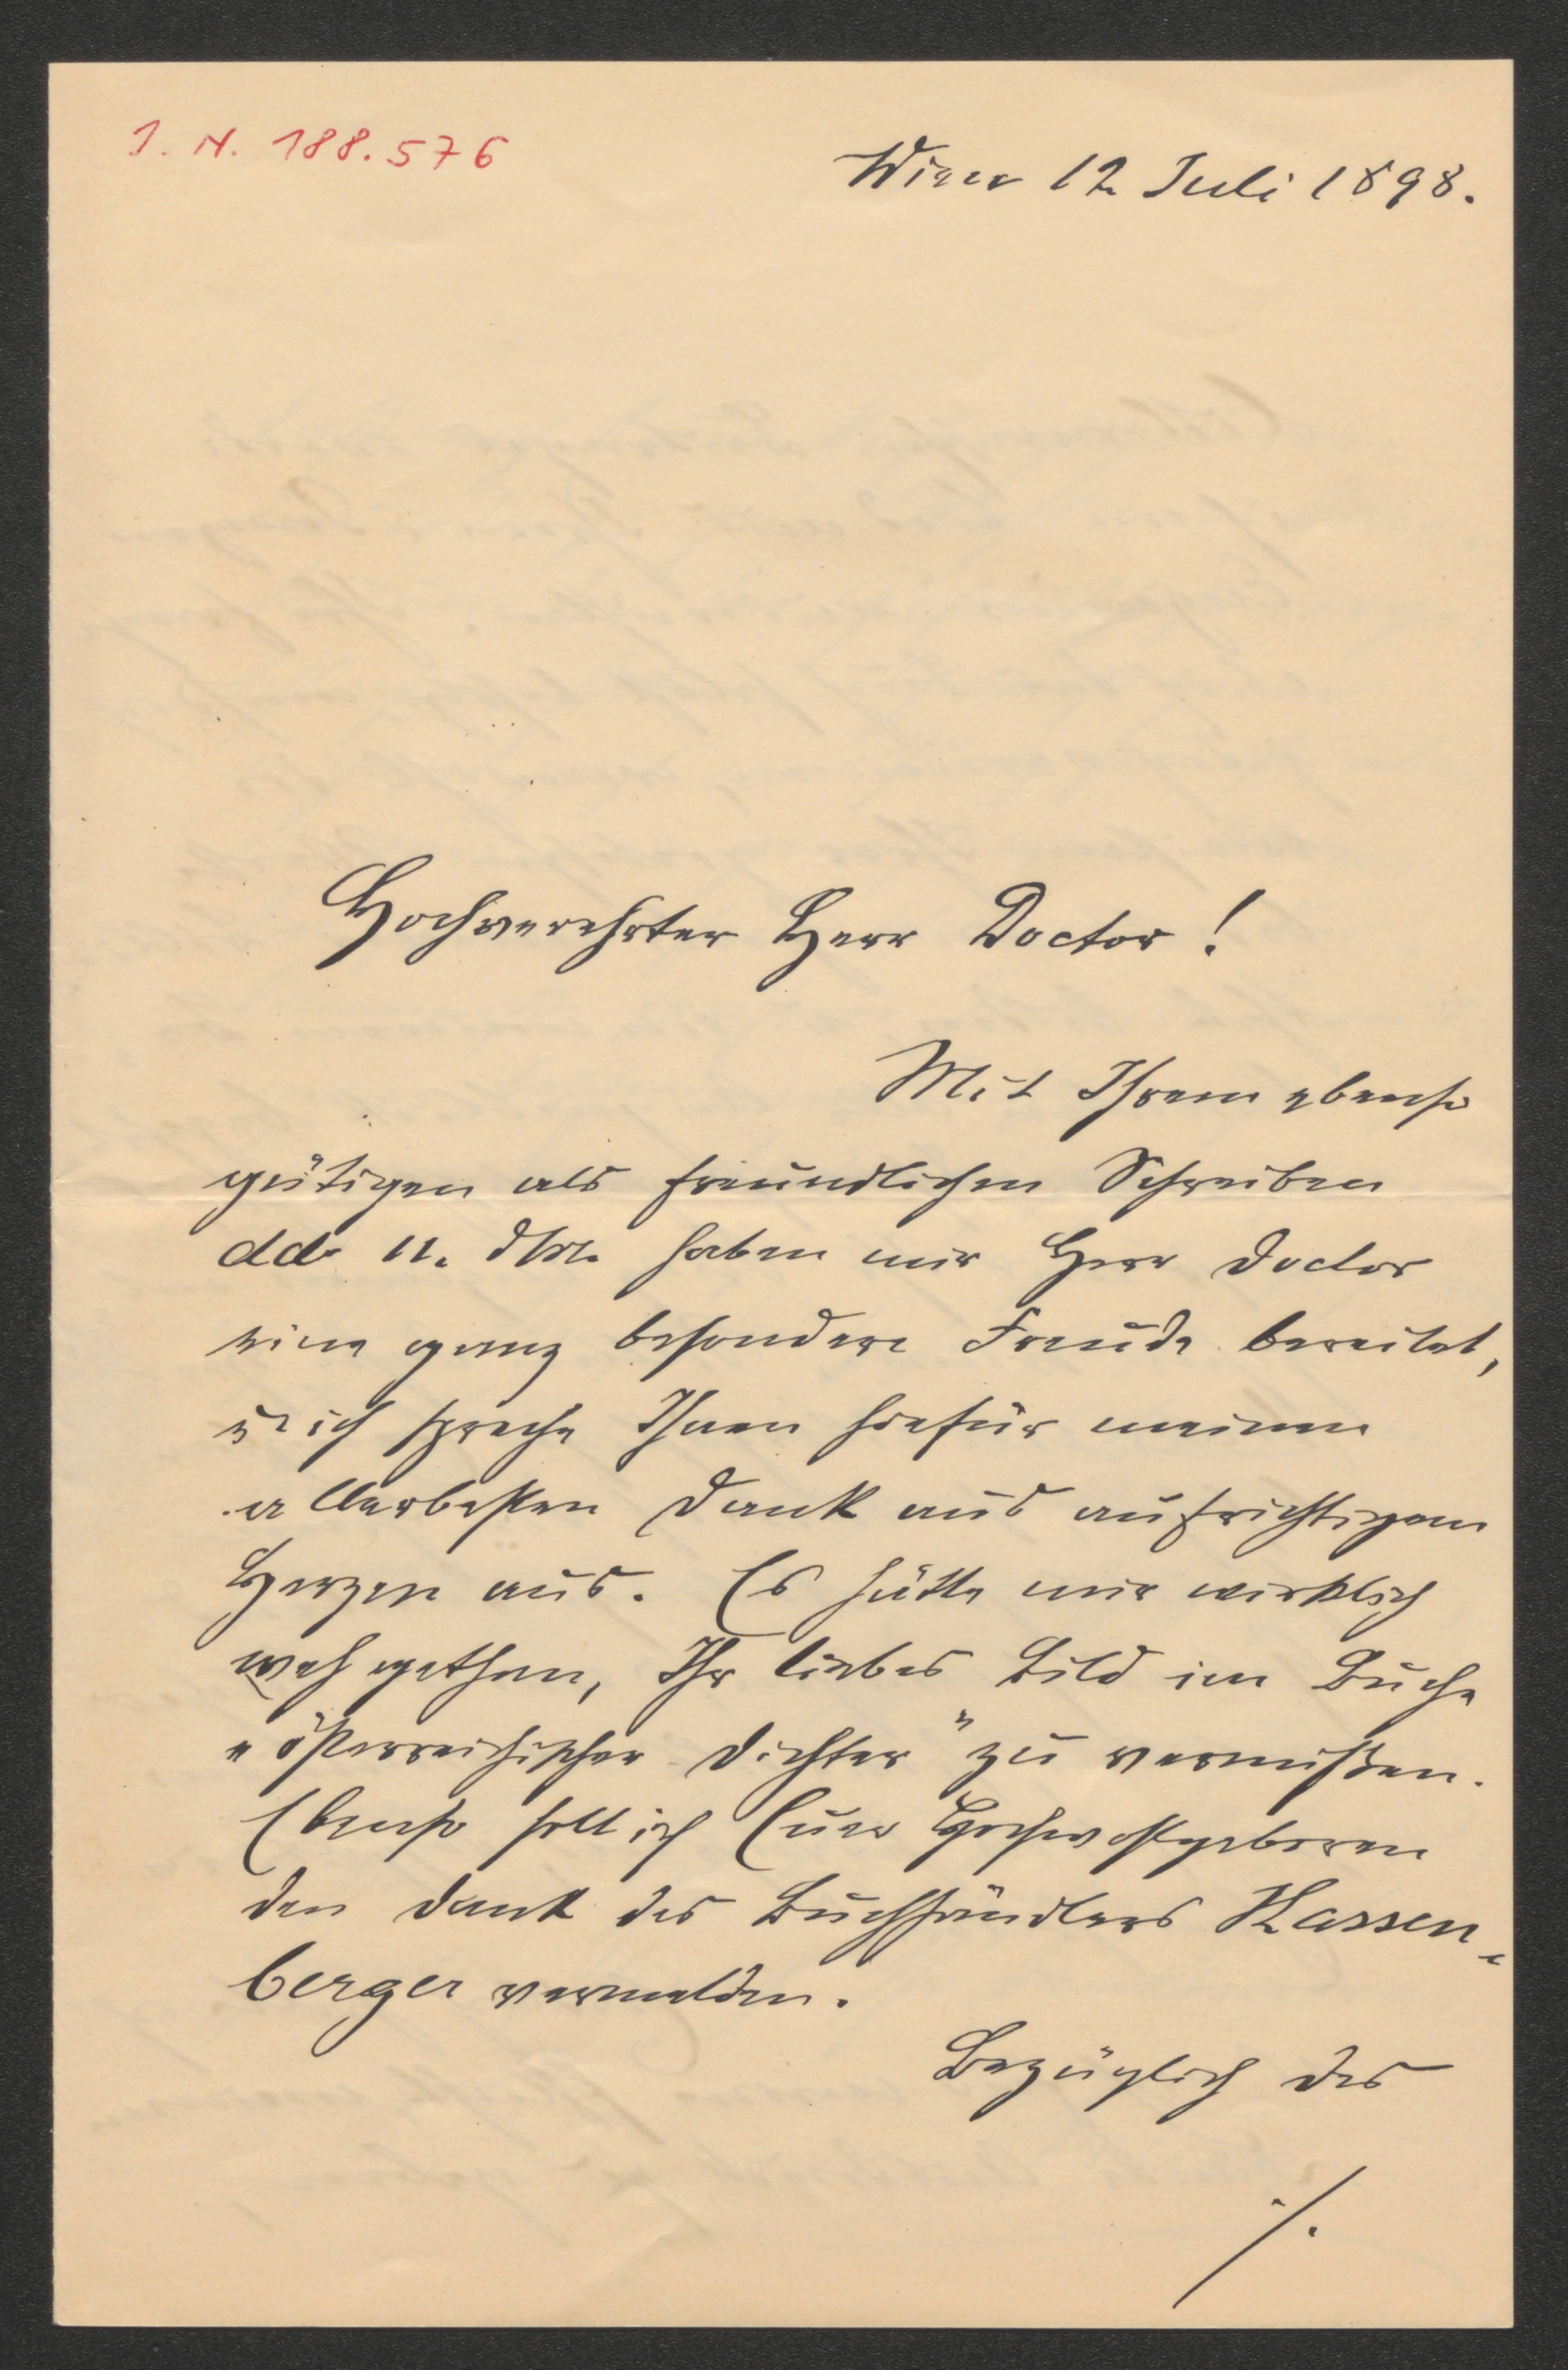 J. N. 188.576
Wien 12 Juli 1898.
Hochverehrter Herr Doctor!
Mit Ihrem ebenso
gütigen als freundlichen Schreiben
ddo 11. haben mir Herr Doctor
eine ganz besondere Freude bereitet,
u ich spreche Ihnen hiefür meinen
allerbesten Dank aus aufrichtigem
Herzen aus. Es hätte mir wirklich
weh gethan, Ihr liebes Bild im Buche
"österreichischer Dichter" zu vermißen.
Ebenso soll ich Euer Hochwohlgeboren
den Dank des Buchhändlers Kassen-
berger vermelden.
Bezüglich des
./.